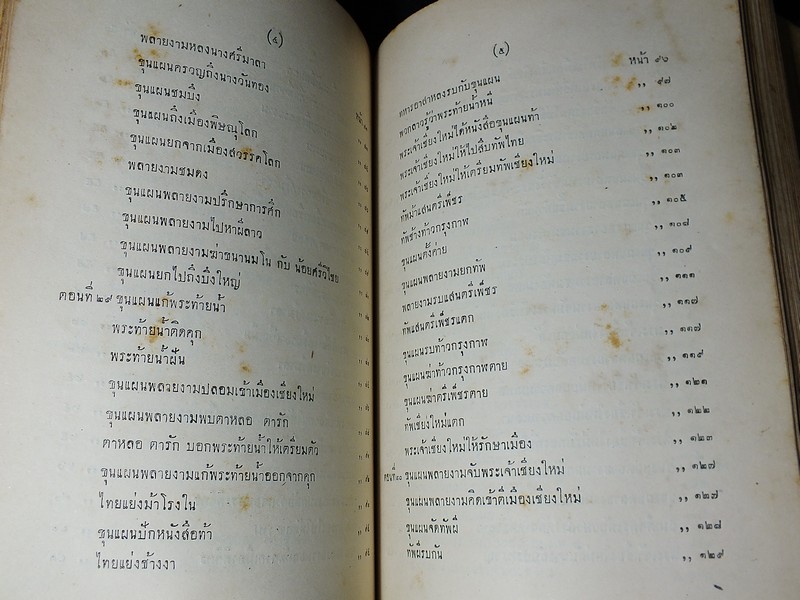 (๔)
พลายงามหลงนางศรีมาลา
ขุนแผนครวญถึงนางวันทอง
ขุนแผนชมบึง
ขุนแผนถึงเมืองพิษณุโลก
ขุนแผนยกจากเมืองสวรรคโลก
พลายงามชมดง
ขุนแผนพลายงามปรึกษาการศึก
ขุนแผนพลายงามไปหาผีลาว
ขุนแผนพลายงามฆ่าขนานมโน กับ น้อยศรีวิไชย
ขุนแผนยกไปถึงบึงใหญ่
ตอนที่ ๒๙ ขุนแผนแก้พระท้ายน้ำ
พระท้ายน้ำติดคุก
พระท้ายน้ำฝัน
ขุนแผนพลายงามปลอมเข้าเมืองเชียงใหม่
ขุนแผนพลายงามพบตาหลอ ตารัก
ตาหลอ ตารัก บอกพระท้ายน้ำให้เตรียมตัว
ขุนแผนพลายงามแก้พระท้ายน้ำออกจากคุก
ไทยแย่งม้าโรงใน
ขุนแผนปักหนังสือท้า
ไทยแย่งช้างงา
(๕)
ทหารอาสาหลงรบกับขุนแผน หน้า ๙๖
พวกลาวรู้ว่าพระท้ายน้ำหนี ,, ๙๗
พระเจ้าเชียงใหม่ได้หนังสือขุนแผนท้า ,, ๑๐๐
พระเจ้าเชียงใหม่ให้ไปสืบทัพไทย ,, ๑๐๒
พระเจ้าเชียงใหม่ให้เตรียมทัพเชียงใหม่ ,, ๑๐๓
ทัพม้าแสนตรีเพ็ชร ,, ๑๐๓
ทัพช้างท้าวกรุงกาฬ ,, ๑๐๕
ขุนแผนตั้งค่าย ,, ๑๐๘
ขุนแผนพลายงามยกทัพ ,, ๑๐๙
พลายงามรบแสนตรีเพ็ชร ,, ๑๑๑
ทัพแสนตรีเพ็ชรแตก ,, ๑๑๗
ขุนแผนรบท้าวกรุงกาฬ ,, ๑๑๗
ขุนแผนฆ่าท้าวกรุงกาฬตาย ,, ๑๑๙
ขุนแผนฆ่าตรีเพ็ชรตาย ,, ๑๒๑
ทัพเชียงใหม่แตก ,, ๑๒๒
พระเจ้าเชียงใหม่ให้รักษาเมือง ,, ๑๒๓
ตอนที่ ๓๐ ขุนแผนพลายงามจับพระเจ้าเชียงใหม่ ,, ๑๒๗
ขุนแผนพลายงามคิดเข้าตีเมืองเชียงใหม่ ,, ๑๒๗
ขุนแผนจัดทัพผี ,, ๑๒๘
ทัพผีรบกัน ,, ๑๒๙